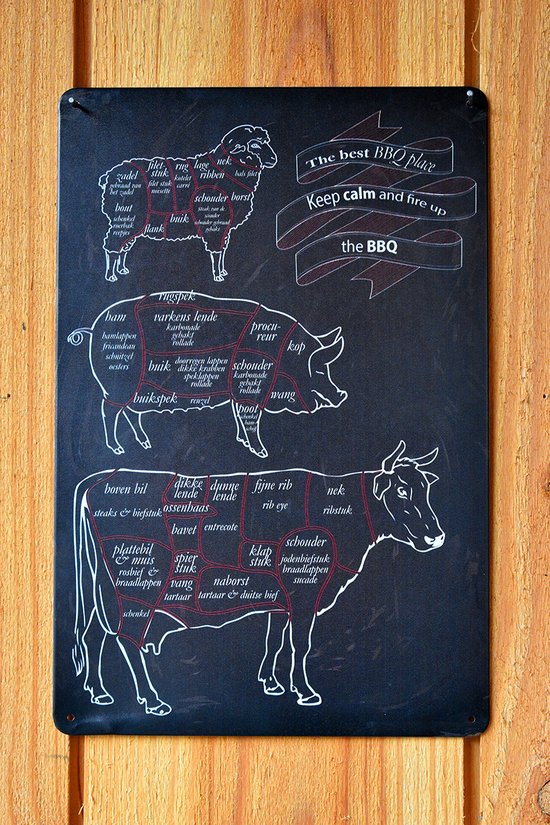 The best BBQ place
Keep calm and fire up
the BBQ
zadel
gebraad van
het zadel
filet-
stuk
filet stuk
noisette
rug
kotelet
carré
lage
ribben
nek
hals filet
schouder
borst
schouder gebraad
gebakt
bout
schenkel
roerbak
reepjes
buik
flank
rugspek
ham
hamlappen
fricandeau
schnitzel
oesters
varkens lende
karbonade
gehakt
rollade
procu-
reur
kop
buik
doorregen lappen
dikke krabben
speklappen
rollade
schouder
karbonade
gehakt
rollade
wang
buikspek
reuzel
poot
schenkel
ham
schijf
boven bil
steaks & biefstuk
dikke
lende
dunne
lende
ossenhaas
fijne rib
rib eye
nek
ribstuk
bavel
entrecote
plattebil
& muis
rosbief &
braadlappen
spier
stuk
klap
stuk
schouder
jodenbiefstuk
braadlappen
sucade
vang
tartaar
naborst
tartaar & duitse bief
schenkel